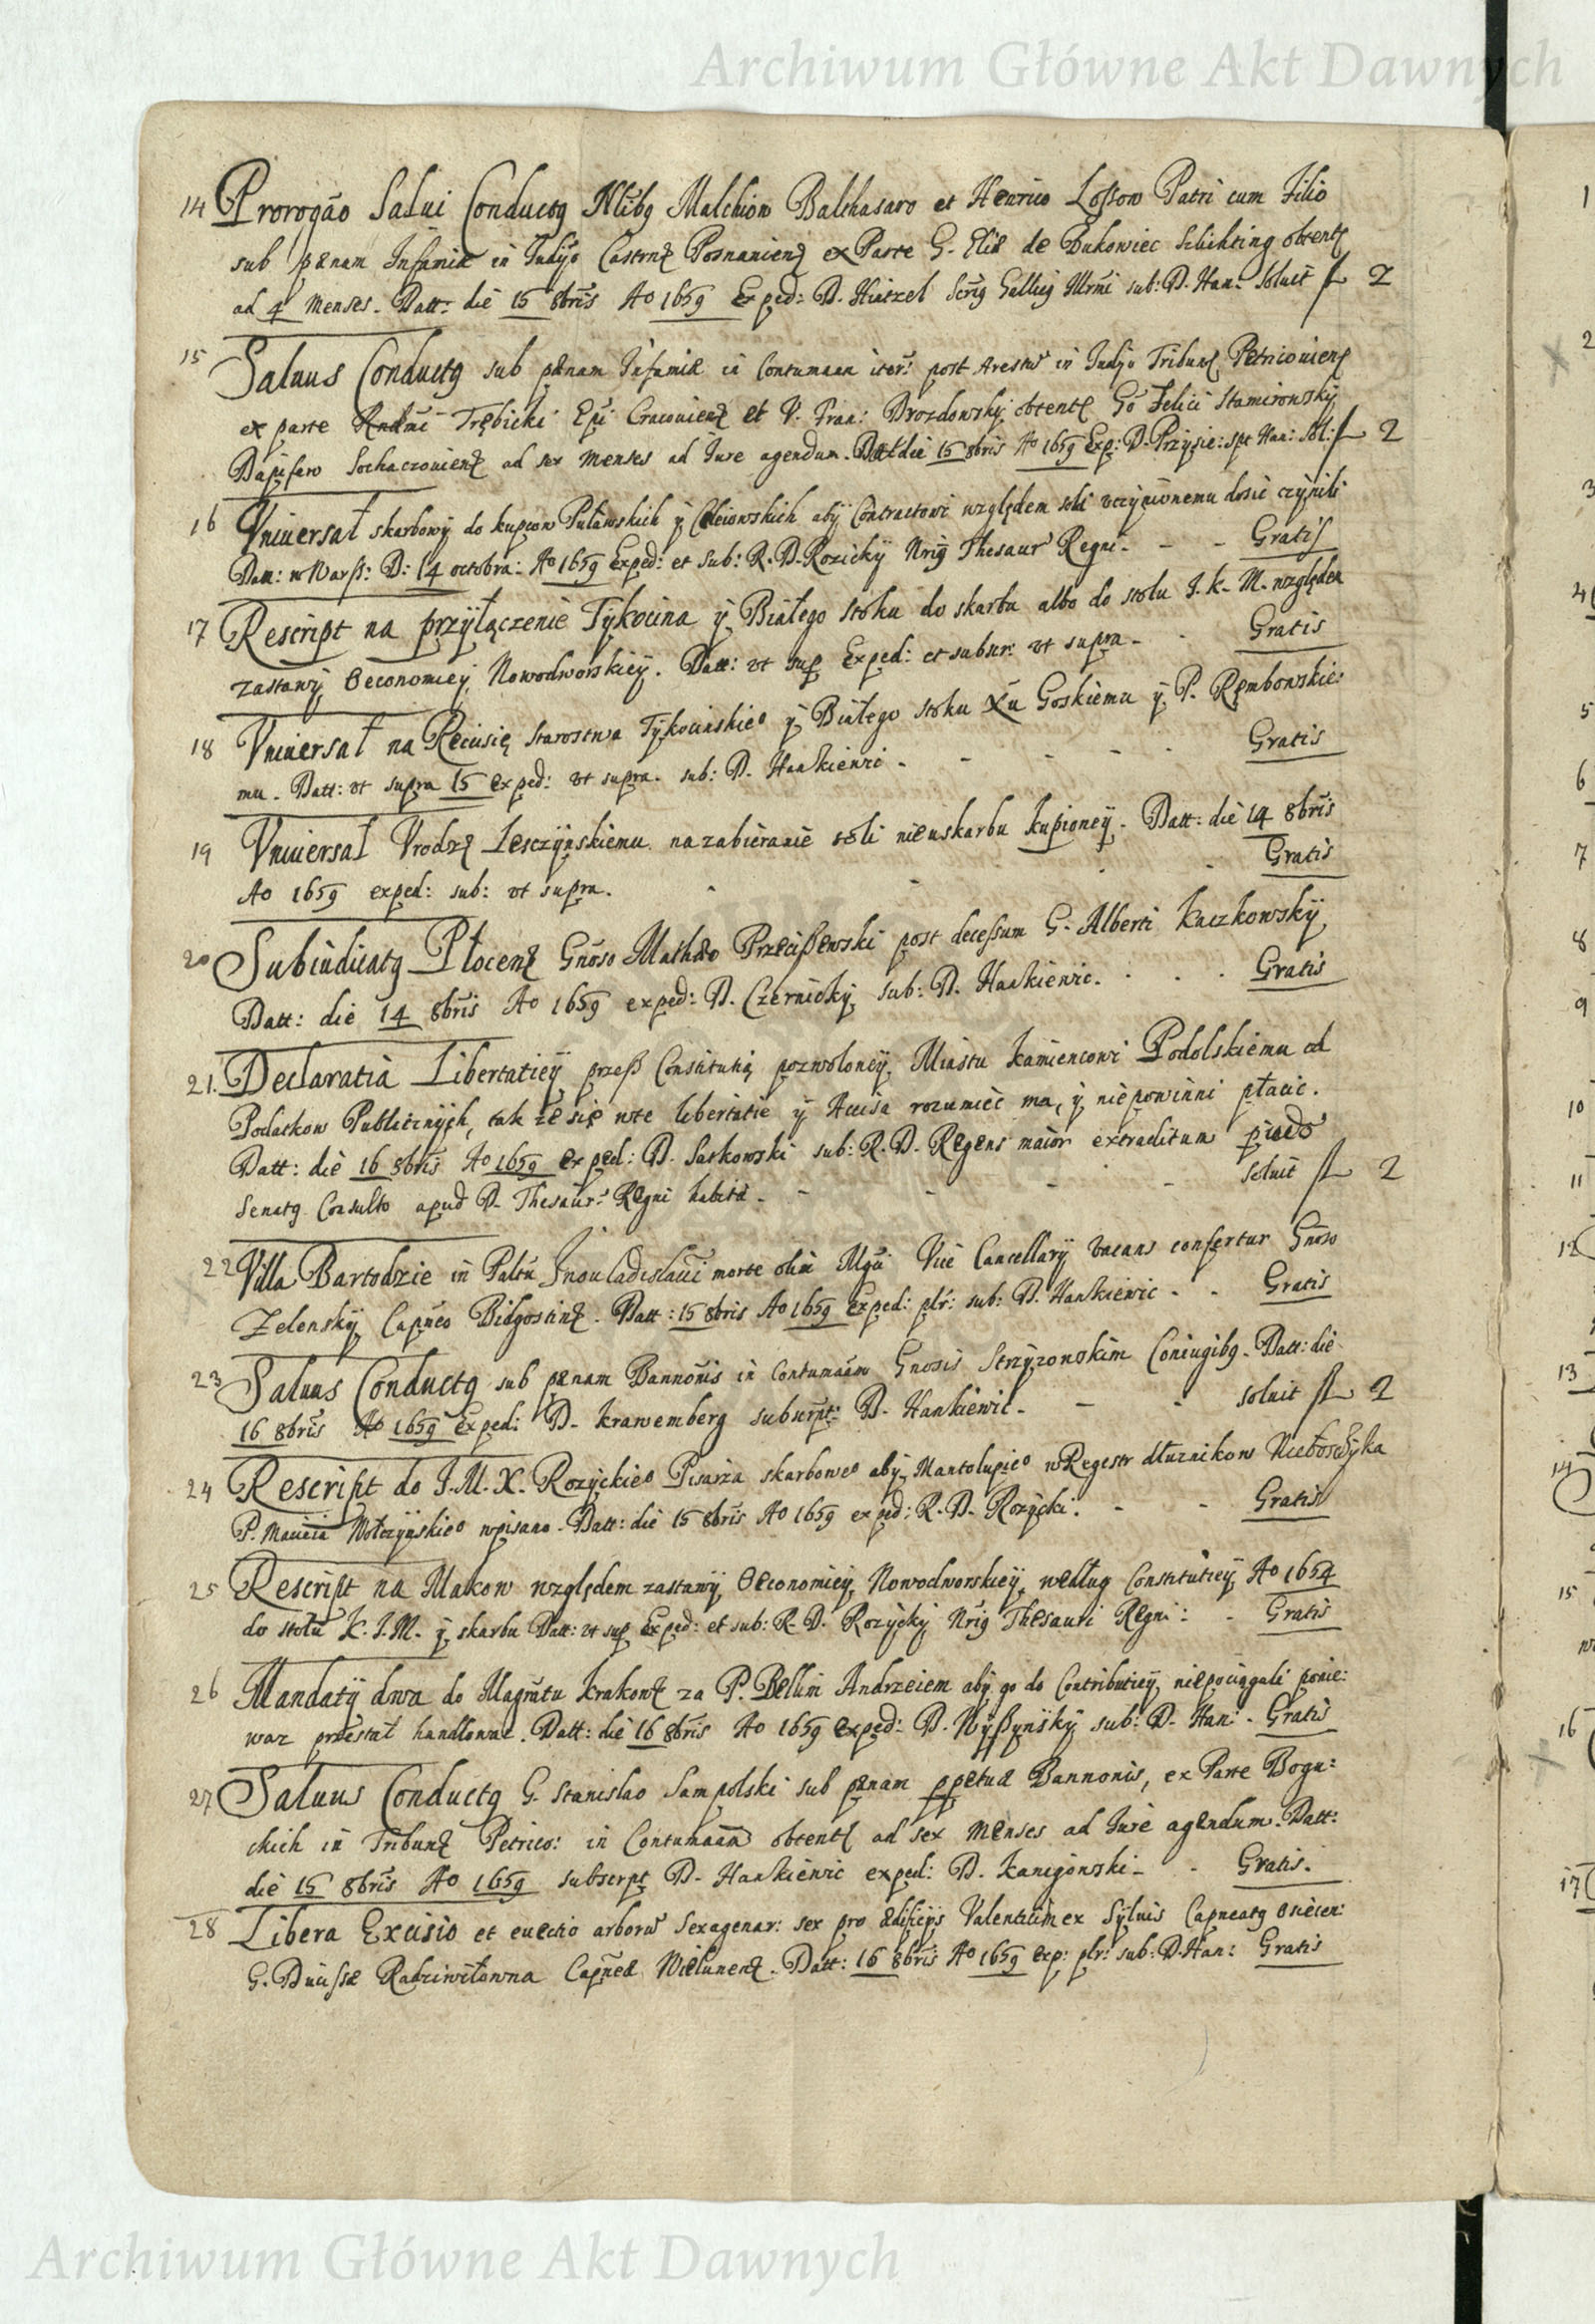 Archiwum Główne Akt Dawnych
14 Prorogão Salui Conductq Nlibq Malchiori Balthasaro et Henrico Loßow Patri cum Filio
sub pænam Infamiæ in Judijo Castrenz Posnanienz ex Parte G. Eliæ de Bukowiec Schlichting obtent
ad 4 Menses. Datt: die 15 8bris Ao 1659 Exped: D. Hintzel sub: D. Han: Soluit fl 2
15 Saluus Conductq sub pænam Infamiæ in Contumaciam post Arestum in Judijo Tribunz Petricouienz
ex parte Rndmi Trębicki Epi Cracouienz et V. Fran: Drozdowskÿ obtent Go Felici Stamirowskÿ
Dapifero Sochaczouienz ad sex Menses ad Jure agendum. Datt die 15 8bris Ao 1659 Exp: D. Przyie: Han: Sol: fl 2
16 Vniuersał skarbowÿ do kupcow Puławskich ÿ abÿ Contractowi względem soli vczÿnionemu dosic czÿnili
Datt: w Warß: D: 14 octobra: Ao 1659 Exped: et Sub: R. D. Rozickÿ Nriq Thesaur Regni - - - Gratis
17 Rescript na przÿłączenie Tÿkocina ÿ Białego Stoku do skarbu albo do stołu J. K. M. względem
zastawÿ Oeconomieÿ Nowodworskieÿ. Datt: vt sup Exped: et subscr: vt supra - - Gratis
18 Vniuersał na Reuisię Starostwa Tÿkocinskieo ÿ Białego Stoku Xu Goskiemu ÿ P. Rembowskie:
mu. Datt: vt supra 15 exped: vt supra. sub: D. Hankiewic - - - - - Gratis
19 Vniuersał Vrodz Lesczÿnskiemu na zabieranie soli nieuskarbu kupioneÿ. Datt: die 14 8bris
Ao 1659 exped: sub: vt supra. - - - - Gratis
20 Subiudicatq Płocenz Gnoso Mathæo Przecißewski post decessum G. Alberti Kaczkowskÿ
Datt: die 14 8bris Ao 1659 exped: D. Czernickÿ sub: D. Hankiewic. - - - Gratis
21. Declaratia Libertatieÿ przeß Constitutią pozwoloneÿ Miastu Kamiencowi Podolskiemu od
Podatkow Publicznÿch, tak że się wte libertatie ÿ Accisa rozumiec ma, ÿ niepowinni płacic.
Datt: die 16 8bris Ao 1659 exped: D. Sarkowski sub: R. D. Regens maior extraditum
Senatq Consulto apud D. Thesaur: Regni habita - - - - - soluit fl 2
22 Villa Bartodzie in Paltu Inouladislaui morte olim Mgci Vice Cancellarÿ vacans confertur Gnoso
Zelenskÿ Capneo Bidgostinz. Datt: 15 8bris Ao 1659 Exped: plr: sub: D. Hankiewic - - Gratis
23 Saluus Conductq sub pænam Bannonis in Contumaam Gnosis Strzÿzowskim Coniugibq. Datt: die
16 8bris Ao 1659 Exped: D. Krawemberg subscrpt: D. Hankiewic - - - soluit fl 2
24 Rescript do J. M. X. Rozÿckieo Pisarza skarboweo abÿ Mantolupieo w Regestr dłuznikow Nieboscżÿka
P. Maucia Wołczÿnskieo wpisano. Datt: die 15 8bris Ao 1659 exped: R. D. Rozÿcki. - - Gratis
25 Rescript na Makow względem zastawÿ Oeconomieÿ Nowodworskieÿ według Constitutieÿ Ao 1654
do stołu K. J. M. ÿ skarbu Datt: vt sup Exped: et sub: R. D. Rozÿckÿ Nriq Thesauri Regni: - Gratis
26 Mandatÿ dwa do Magratu Krakowz za P. Bellim Andrzeiem abÿ go do Contributieÿ niepociągali ponie:
waz przestał handlowac. Datt: die 16 8bris Ao 1659 exped: D. Wÿßÿnskÿ sub: D. Han: - Gratis
27 Saluus Conductq G. Stanislao Sampolski sub pænam ppetuæ Bannonis, ex Parte Bogu:
ckich in Tribunz Petrico: in Contumaam obtent ad sex Menses ad Jure agendum. Datt:
die 15 8bris Ao 1659 subscrpt D. Hankiewic exped: D. Kanigowski - - Gratis.
28 Libera Excisio et euectio arborum Sexagenar: sex pro ædificÿs Valentinim ex Sÿluis Capneatq Osiecen:
G. Ducissæ Radziwiłowna Capneæ Wielunenz. Datt: 16 8bris Ao 1659 exp: plr: sub: D. Han: Gratis
Archiwum Główne Akt Dawnych